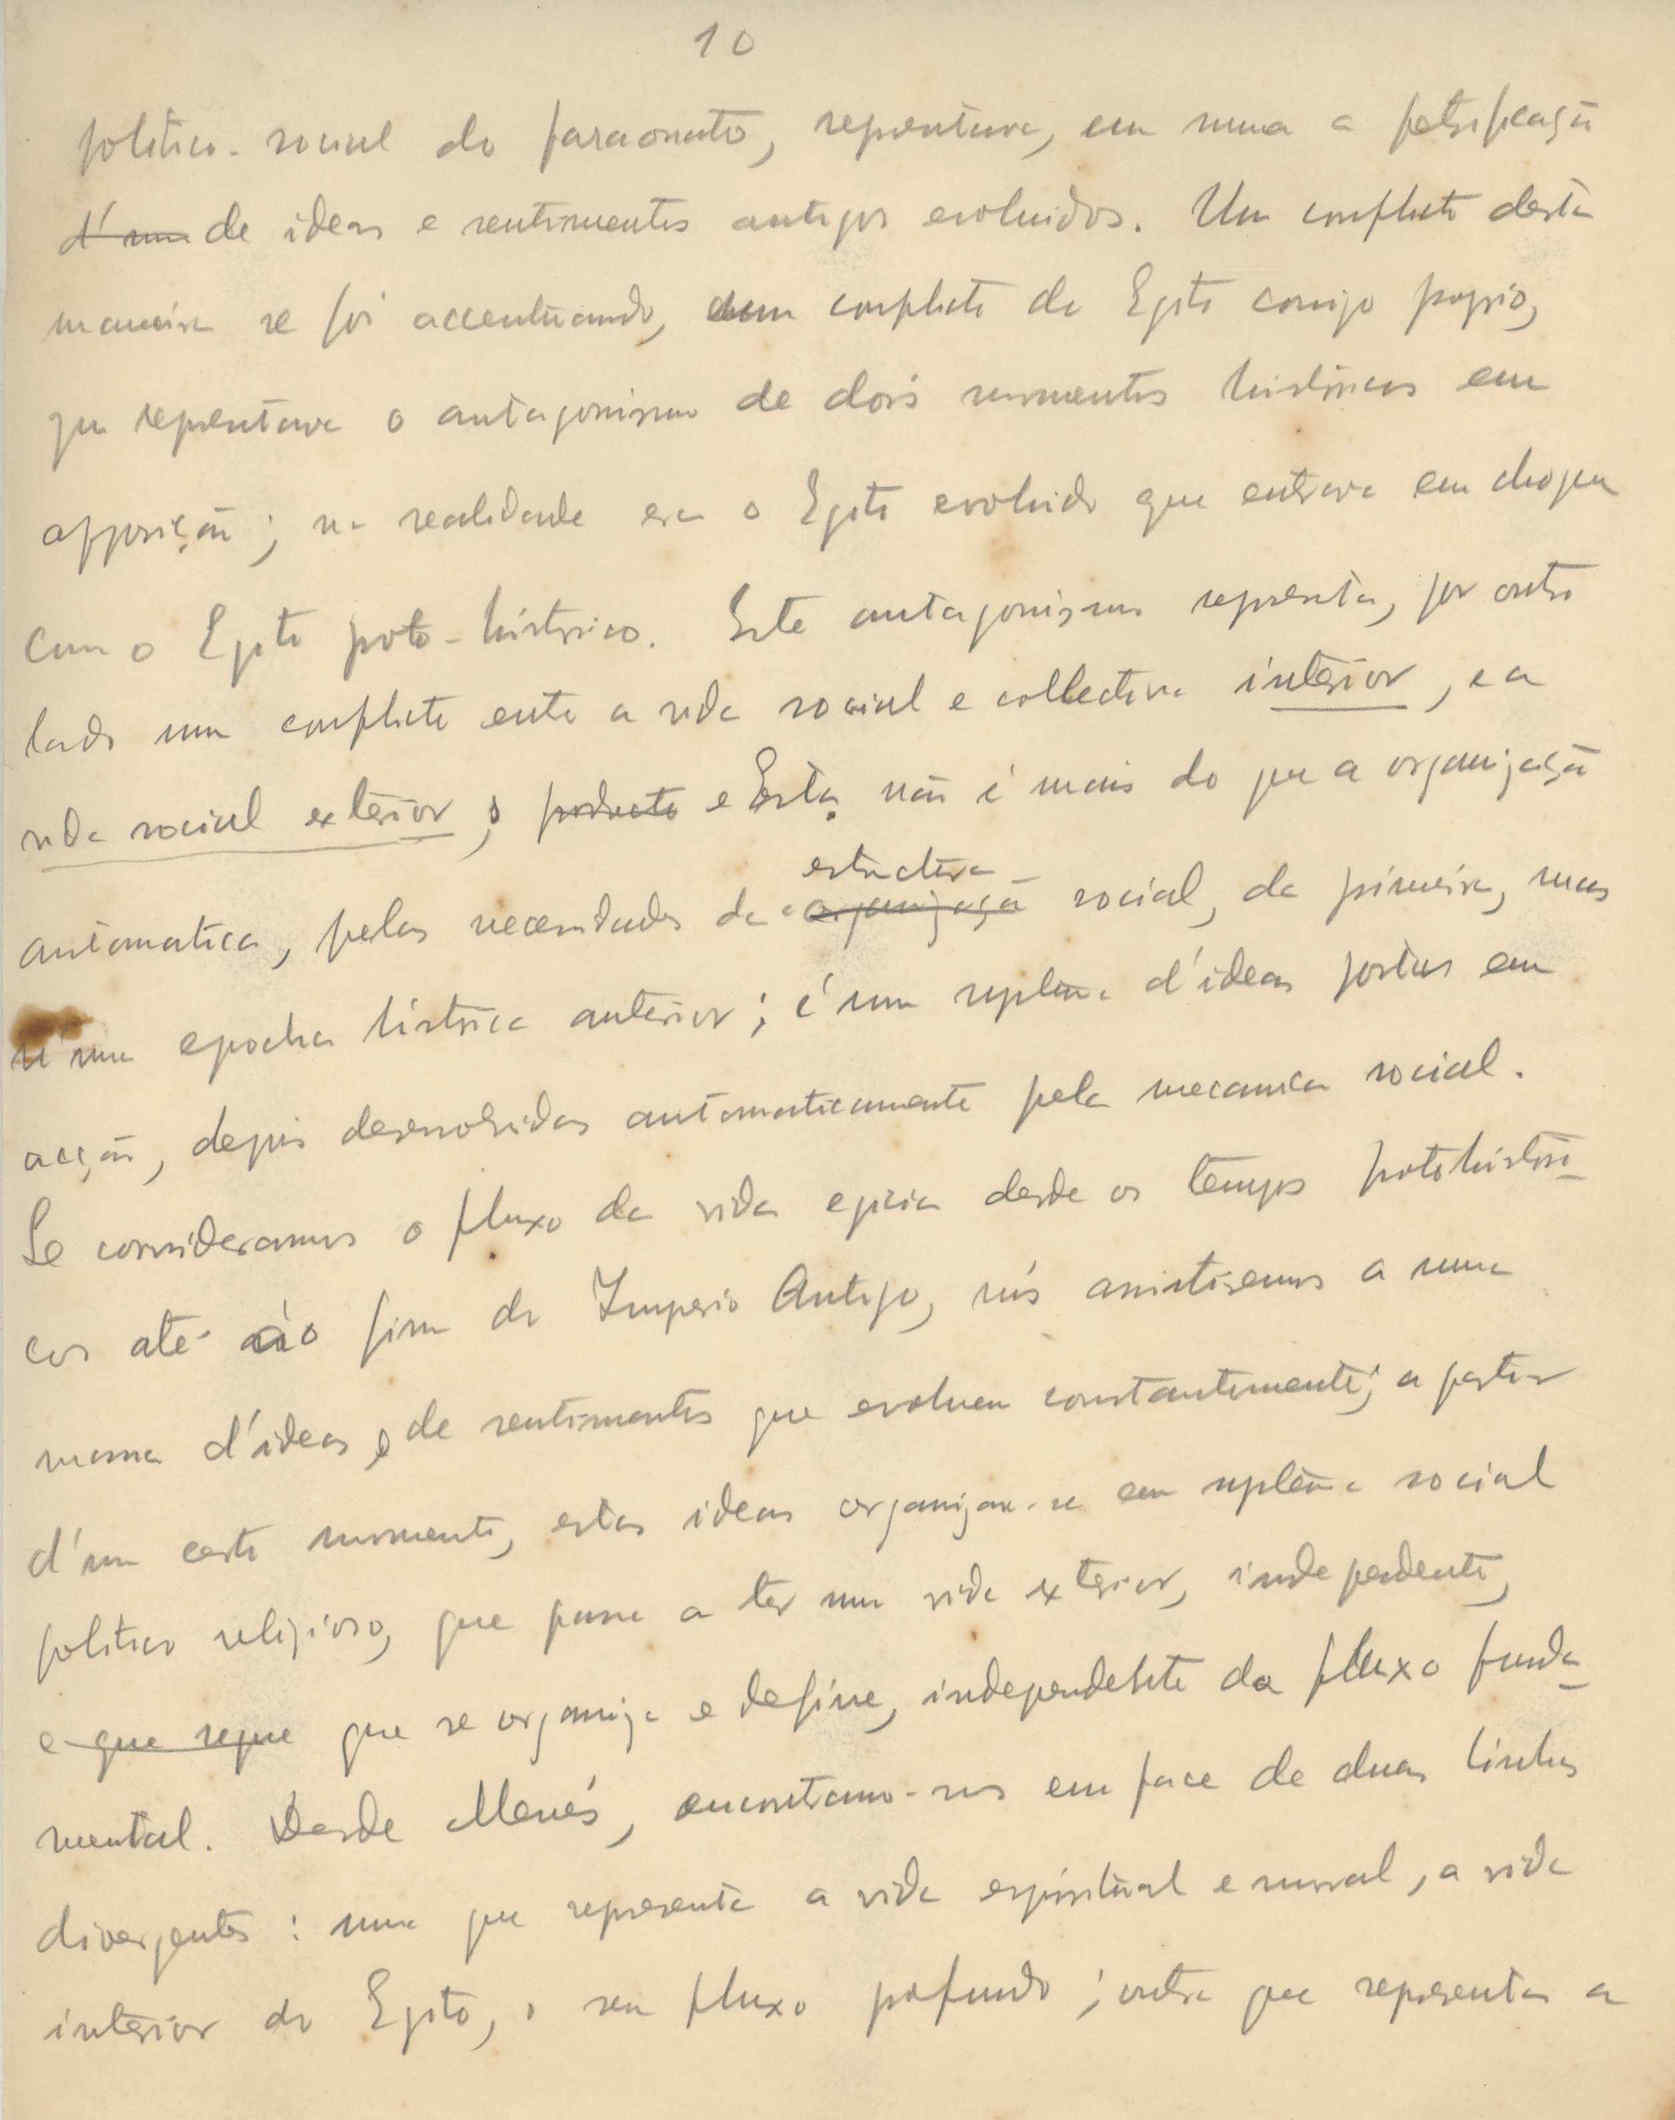 10
politico-social do faraonato, representava, em summa a petrificação
d'uma de ideas e sentimentos antigos evoluidos. Um conflicto desta
maneira se foi accentuando, um conflicto do Egito comsigo proprio,
que representava o antagonismo de dois momentos historicos em
opposição; na realidade era o Egito evoluido que entrava em choque
com o Egito proto-historico. Este antagonismo representa, por outro
lado um conflicto entre a vida social e collectiva interior, e a
vida social exterior; producto e Esta não é mais do que a organização
estructura
automatica, pelas necessidades da organização social, da primeira, mas
n'uma epocha historica anterior; é um systema d'ideas postas em
acção, depois desenvolvidas automaticamente pela mecanica social.
Se consideramos o fluxo da vida egicia desde os tempos protohistori-
cos até ao fim do Imperio Antigo, nós assistiremos a uma
massa d'ideas e de sentimentos que evoluem constantemente; a partir
d'um certo momento, estas ideas organizam-se em systema social
politico religioso, que passa a ter uma vida exterior, independente,
e que segue que se organiza e define, independente do fluxo funda-
mental. Desde Menés, encontramo-nos em face de duas linhas
divergentes: uma que representa a vida espiritual e moral, a vida
interior do Egito, o seu fluxo profundo; outra que representa a